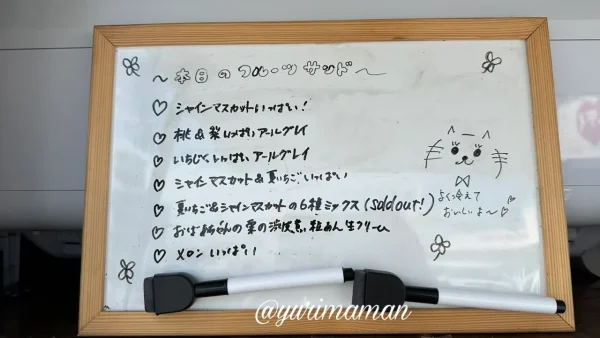 ～本日のフルーツサンド～
♡ シャインマスカットいっぱい!
♡ 桃&梨いっぱいアールグレイ
♡ いちじくいっぱいアールグレイ
♡ シャインマスカット&夏いちごいっぱい
♡ 夏いちご&シャインマスカットの6種ミックス(Sold out!)
♡ おばあちゃんの栗の渋皮煮 粒あん生クリーム
♡ メロンいっぱい
よく冷えて
おいしいよ～♡
@yurimaman